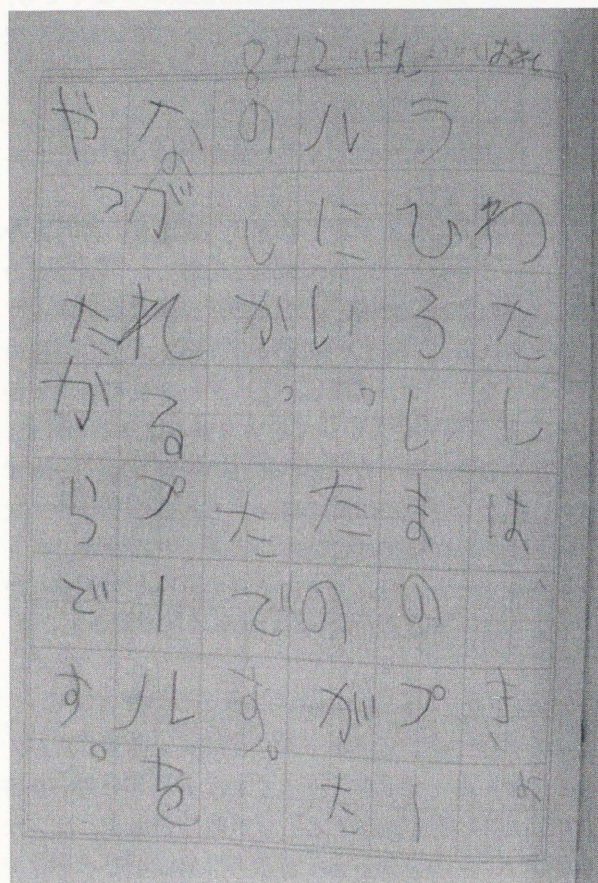 8-12 きん はれ
わたしは、きょ
うひろしまのプー
ルにいったのがた
のしかったです。
ながれるプールを
やったからです。